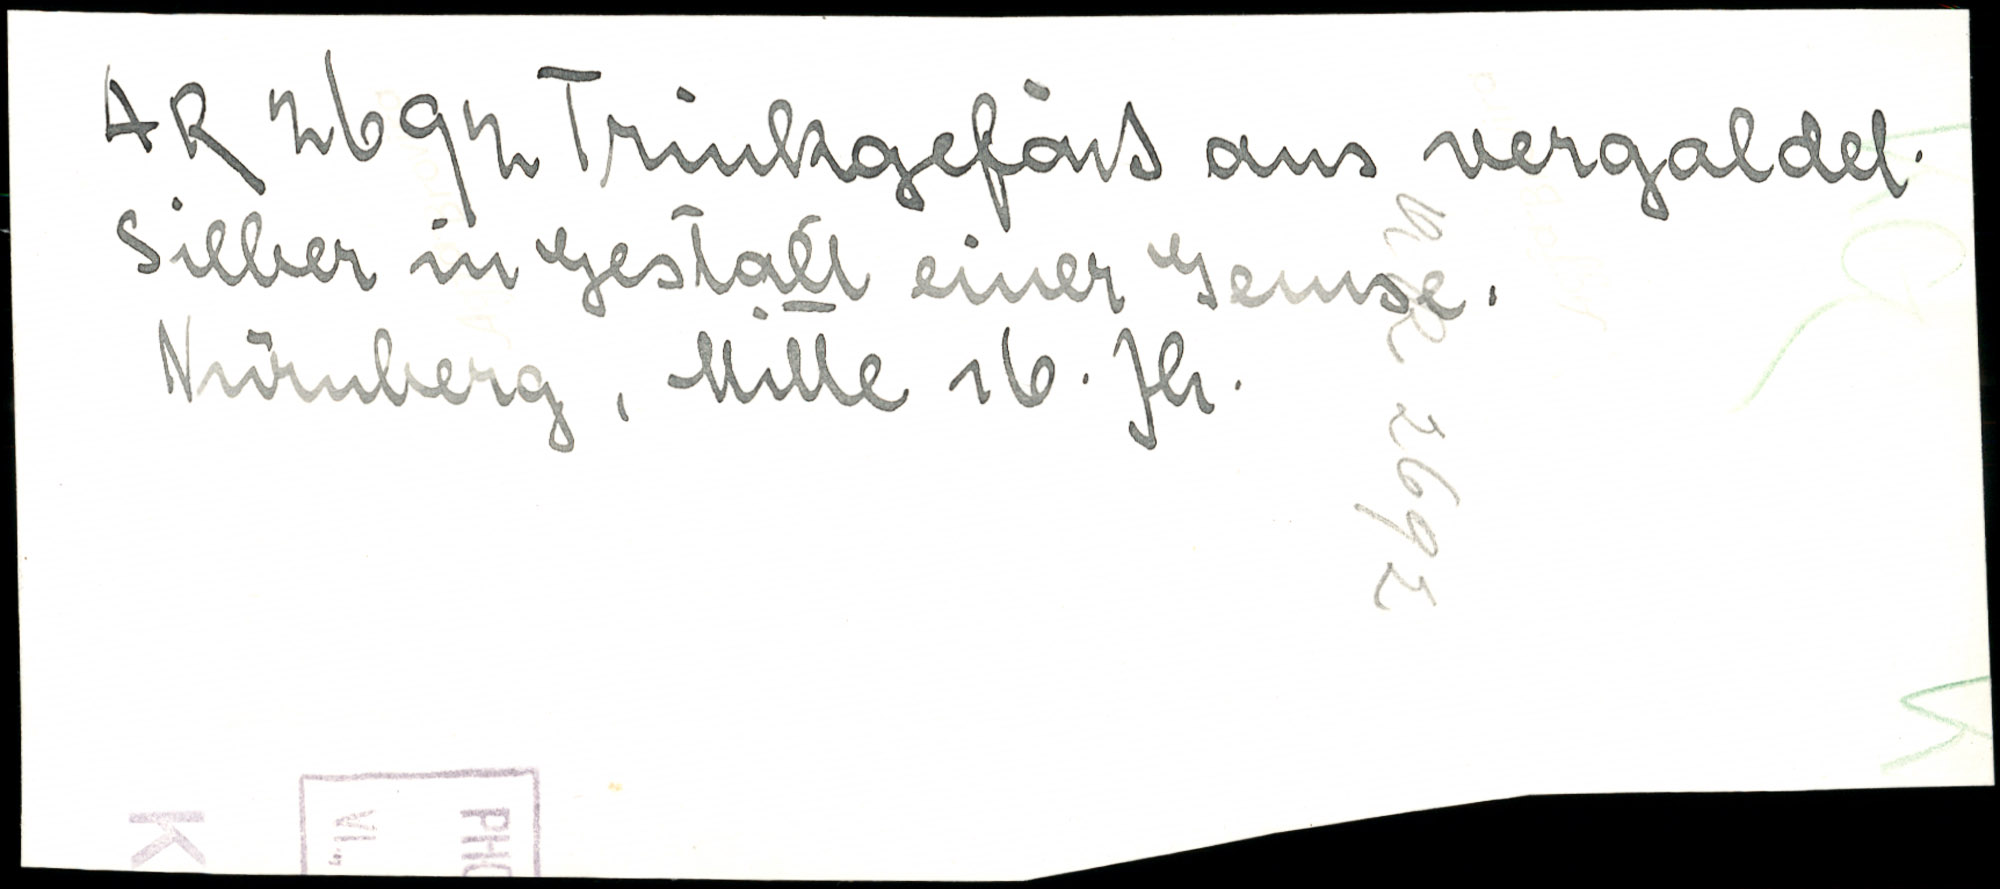 AR 2692 Trinkgefäss aus vergoldet.
Silber in Gestalt einer Gemse.
Nürnberg, Mitte 16. Jh.
AR 2692
PHO
VI.,
K